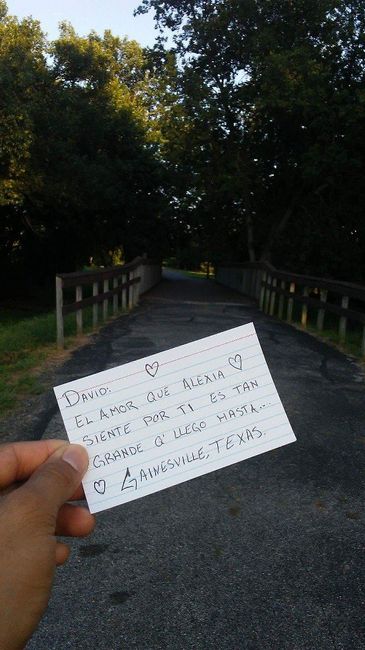 DAVID:
EL AMOR QUE ALEXIA
SIENTE POR TI ES TAN
GRANDE Q' LLEGO HASTA....
GAINESVILLE, TEXAS.